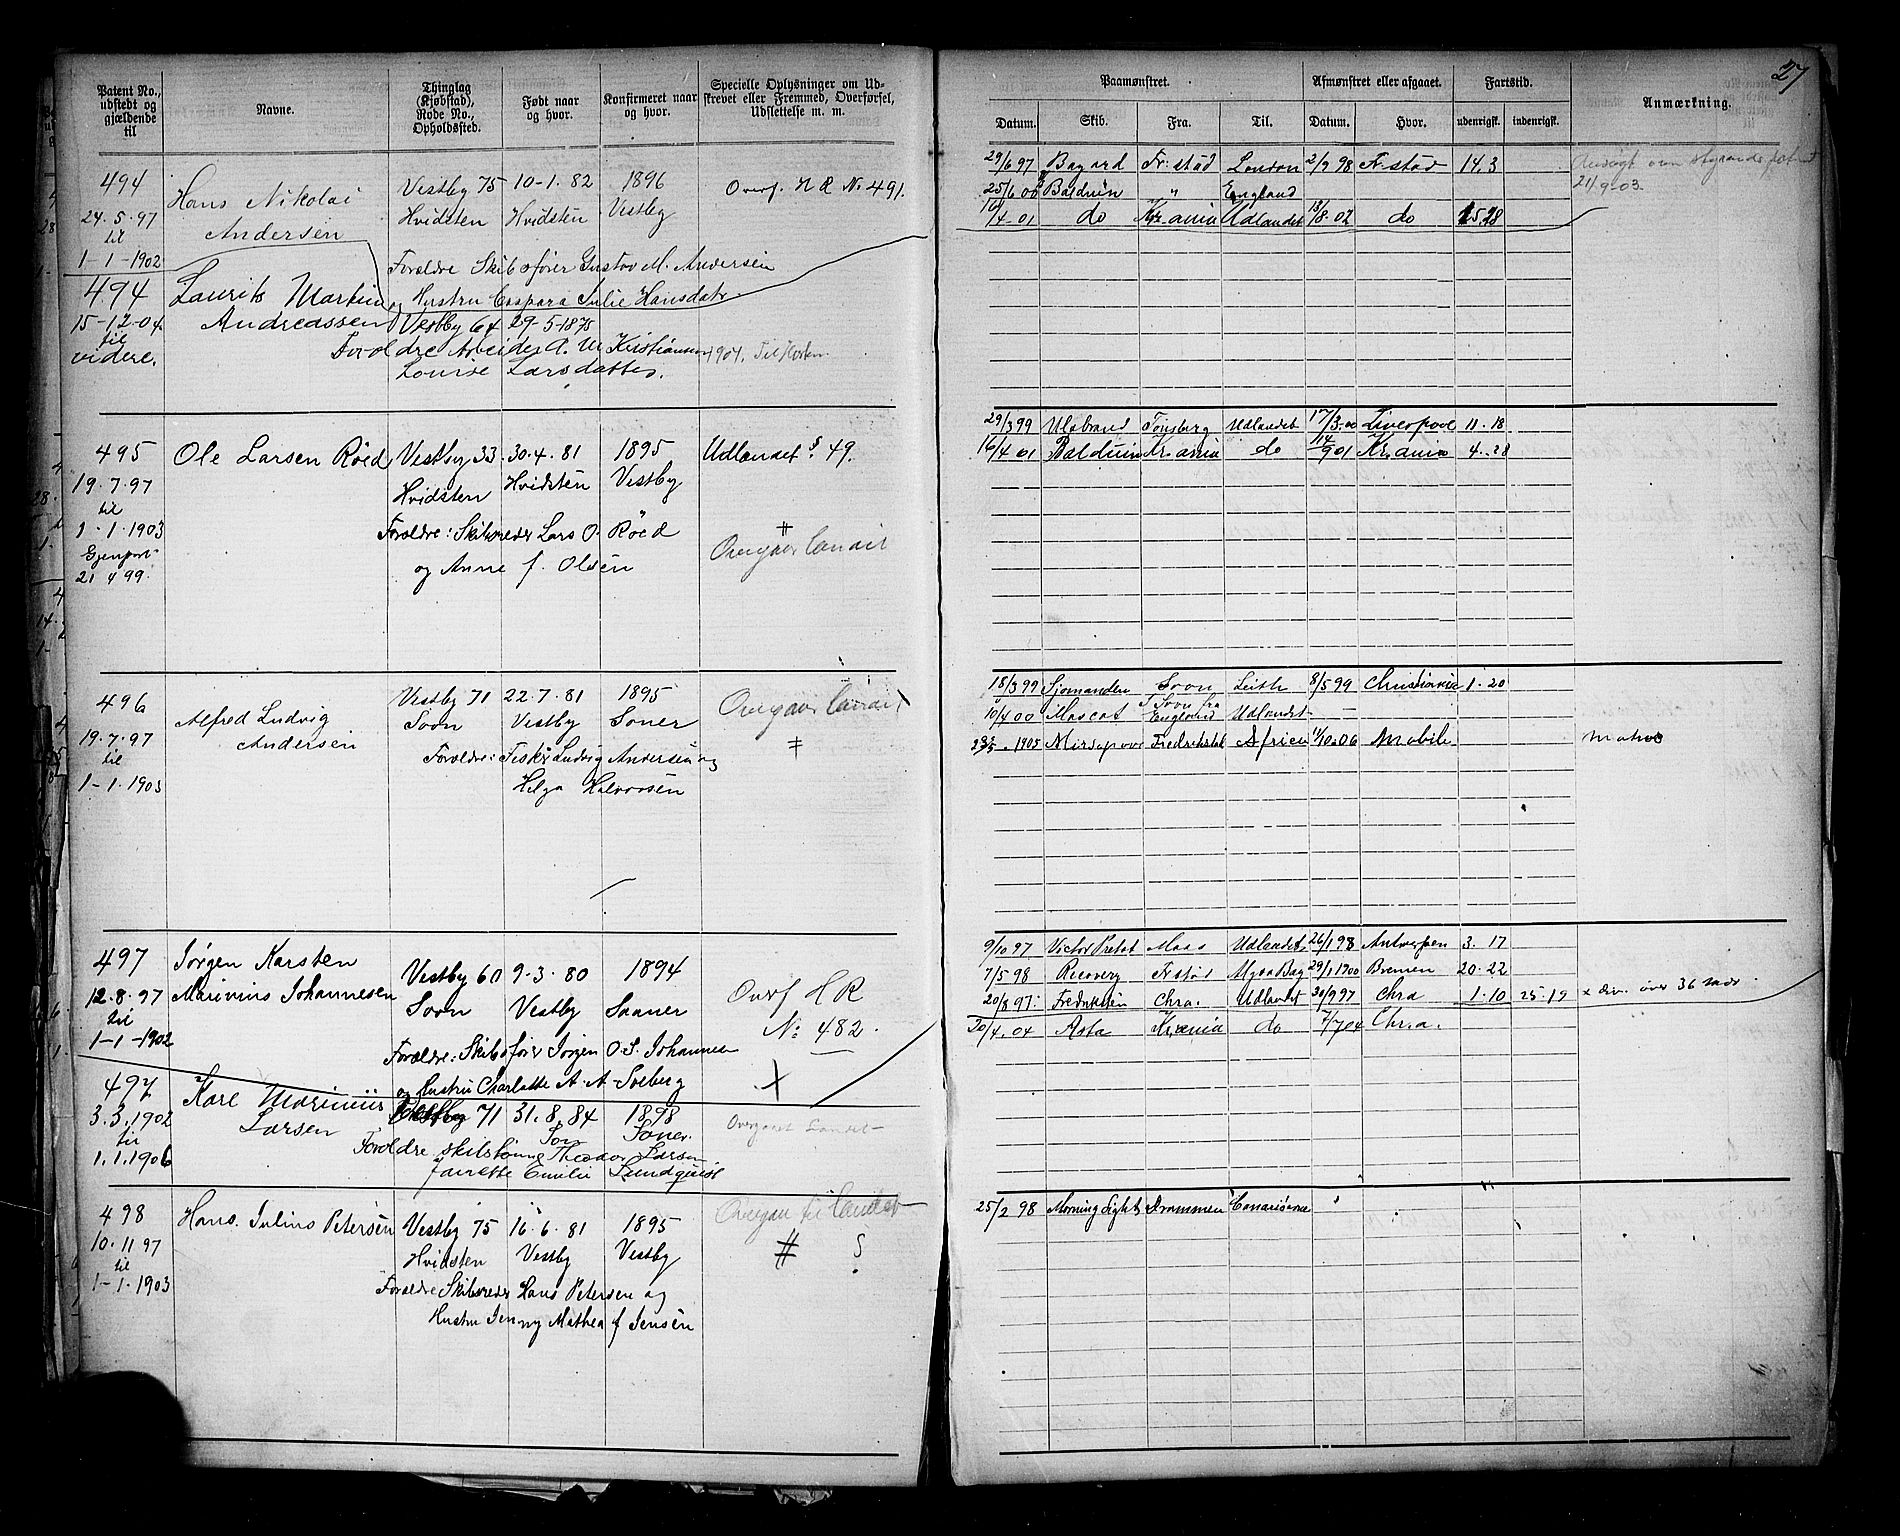 27
Patent No., udstedt og gjældende til
Navne.
Thinglag (Kjøbstad), Rode No., Opholdssted.
Født naar og hvor.
Konfirmeret naar og hvor.
Specielle Oplysninger om Udskrevet eller Fremmed, Overførsel, Udslettelse m. m.
Paamønstret.
Datum. Skib. Fra. Til.
Afmønstret eller afgaaet.
Datum. Hvor.
Fartstid.
udenrigsk. indenrigsk.
Anmærkning.
494 Hans Nikolai Vestby 75 10-1.82 1896 Overf. H R No 491.
24.5.97 Andersen Hvidsten Hvidsten Vestby
til
1-1-1902
Forældre Skibsfører Gustav M. Andersen
og Hustru Caspara Julie Hansdatr.
29/6 97 Bayard Fr:stad London 2/9 98 Fr.stad 14.3
25/6 00 Balduin " England
16/4 01 do Kr.ania Udlandet 13/8.02 do 15.28
21/9-03.
494 Laurits Martin
15-12-04 Andreassen Vestby 64 29-5-1875
til
videre.
Forældre Arbeider A. M. Kristiansen
Louise Larsdatter.
1904. Til Horten
495 Ole Larsen Röed Vestby 33 30.4.81 1895 Udlandet § 49.
19.7.97 Hvidsten Hvidsten Vestby
til
1-1.1903 Forældre: Skibsreder Lars O. Röed #
Gjenpart
21 4 99. og Anne f. Olsen
29/3 99 Ulabrand Tönsberg Udlandet 17/3.00 Liverpool 11.18
16/4 01 Balduin Kr.ania do 14/9 01 Kr.ania 4.28
496 Alfred Ludvig Vestby 71 22.7.81 1895
19.7.97 Andersen Soon Vestby Soner
til
1-1.1903
Forældre: Fisker Ludvig Andersen og
Helga Halvorsen
18/3 99 Sjomanden Soon Leith 8/5 99 Christiania 1.20
10/4 00 Mascot England Udlandet
1905 Fredrikstad Africa 11/10.06 Mobile
497 Jørgen Karsten Vestby 60 9-3.80 1894 Overf H R
12.8.97 Marinius Johannesen Soon Vestby Saaner No: 482.
til
1-1-1902
Forældre: Skibsfører Jørgen O. S. Johannesen
og Hustru Charlotte A. A. Solberg X
9/10 97 Victor Pretot Maas Udlandet 26/1 98 Antwerpen 3.17
7/5 98 Recovery Fr.stad 29/1 1900 Bremen 20.22
20/8 97 Chra. Udlandet 30/9 97 Chra 1.10 25.19 x div. over 36
20/4.04 Asta Kr.ania do 7/7 04 Chr.a.
497 Karl Marinius Vestby 71 31.8.84 1898
3.3.1902 Larsen Son Soner.
til
1.1.1906
Forældre Theodor Larsen
Emilie Lundquist
498 Hans Julius Petersen Vestby 75 16.6.81 1895
10.11 97 Hvidsten Vestby Vestby #
til
1-1.1903
Forældre Skibsreder Hans Petersen og
Hustru Jenny Mathea f Jensen
25/2 98 Morning Light Drammen